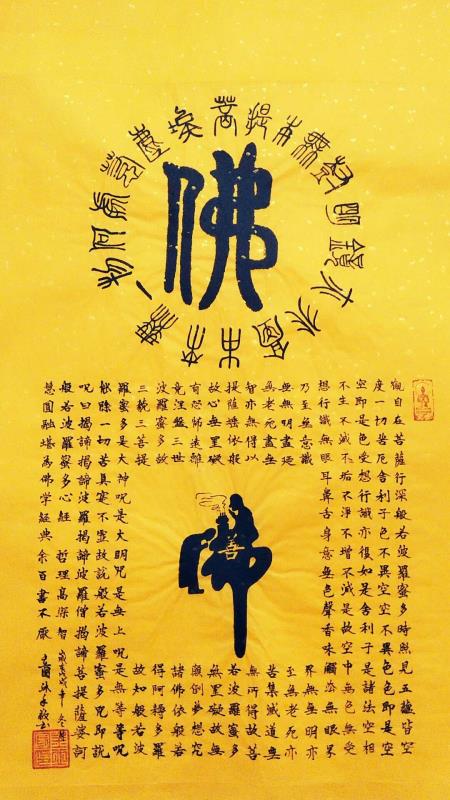 菩提本無樹明鏡亦非臺本來無一物何處惹塵埃
佛
觀自在菩薩行深般若波羅蜜多時照見五蘊皆空
度一切苦厄舍利子色不異空空不異色色即是空
空即是色受想行識亦復如是舍利子是諸法空相
不生不滅不垢不淨不增不減是故空中無色無受
想行識無眼耳鼻舌身意無色聲香味觸法無眼界
乃至無意識界無無明亦
無無明盡乃至無老死亦
無老死盡無苦集滅道無
智亦無得以無所得故菩
提薩埵依般若波羅蜜多
故心無罣礙無罣礙故無
有恐怖遠離顛倒夢想究
竟涅盤三世諸佛依般若
波羅蜜多故得阿耨多羅
三藐三菩提故知般若波
羅蜜多是大神咒是大明咒是無上咒是無等等咒
能除一切苦真實不虛故說般若波羅蜜多咒即說
咒曰揭諦揭諦波羅揭諦波羅僧揭諦菩提薩婆訶
般若波羅蜜多心經 哲理高深智
慧圓融堪為佛學經典余百書不厭
佛
善